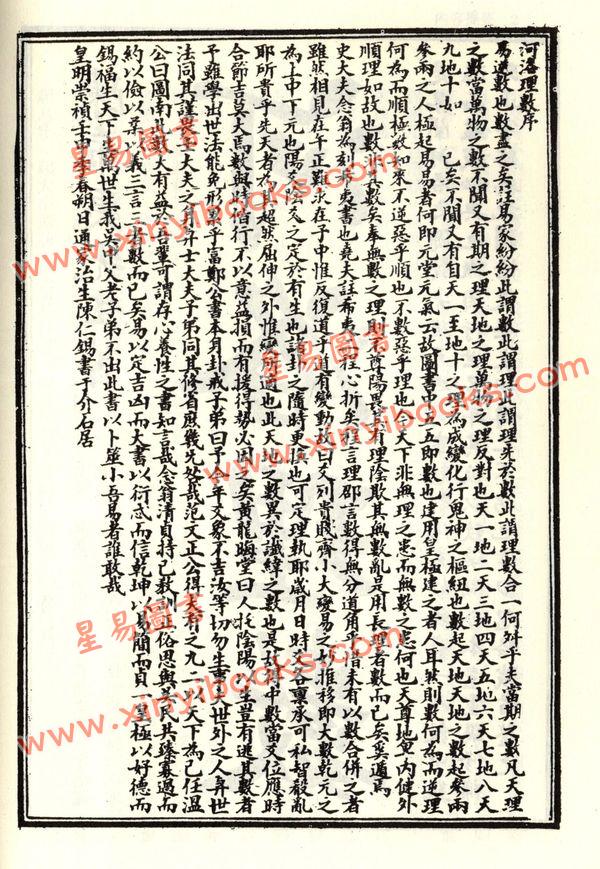 河洛理數序
易逆數也數盡之矣註易家紛紛此謂數此謂理此謂理先於數此謂理數合一何舛乎夫當期之數凡天理
之數當萬物之數不聞又有期之理天地之理萬物之理反對也天一地二天三地四天五地六天七地八天
九地十如 已矣不聞又有自天一至地十之理為成變化行鬼神之樞紐也數起天地天地之數起參兩
參兩之人極起易易者何即元堂元氣云故圖書中五五即數也建用皇極建之者人耳然則數何為而逆理
何為而順極數知來不逆惡乎順也不數惡乎理也今天下非無理之患而無數之患何也天尊地卑內健外
順理如故也數非其數矣奉無數之理則不尊陽畏其有理陰欺其無數亂是用長理者數而已矣奚遁焉
史大夫念翁為刻希夷書也堯夫註希夷 程心折矣程言理邵言數得無分道角乎昔未有以數合併之者
雖然相見在午正難求在子中惟反復道乎道有變動故曰爻列貴賤齊小大變易之妙推移即大數乾元之
為上中下元也陽爻陰爻之定於有生也諸卦之隨時更換也可定理執耶歲月日時 各稟承可私智殽亂
耶所貴乎先天者為其超然屈伸之外惟變所適也此天地之數異於讖緯之數也是故卦中數當爻位應時
合節吉莫大焉數與時偕行不以意益損而有援得勢必因之矣黃龍晦堂曰人托陰陽以生豈有逃其數者
予雖學出世法能免形累乎富鄭公書本身卦戒子弟曰予今年爻象不吉汝等切勿生事夫世外之人與世
法同其謹畏士大夫之身與士大夫子弟同其修省庶幾先處哉范文正公得大有之九二以天下為己任溫
公曰圖南此數大有益於吾輩可謂存心養性之書知言哉念翁清貞持己教訓正俗思與吾民共臻寡過而
約以儉以柔以義三言三 數而已矣易以定吉凶而大書以衍忒而信乾坤以易簡而貞一皇極以好德而
錫福生天下生萬世生我吳中父老子弟不出此書以卜筮小吾易者誰敢哉
皇明崇禎壬申季春朔日通家治生陳仁錫書于介石居
星易圖書
www.xinyibooks.com
星易圖書
www.xinyibooks.com
星易圖書
www.xinyibooks.com